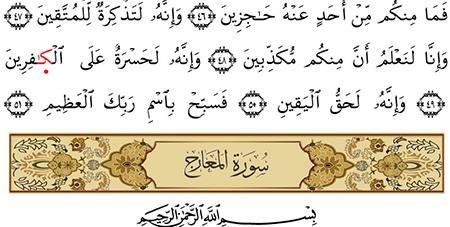 فَمَا مِنكُم مِّنْ أَحَدٍ عَنْهُ حَـٰجِزِينَ ﴿٤٦﴾ وَإِنَّهُۥ لَتَذْكِرَةٌ لِّلْمُتَّقِينَ ﴿٤٧﴾
وَإِنَّا لَنَعْلَمُ أَنَّ مِنكُم مُّكَذِّبِينَ ﴿٤٨﴾ وَإِنَّهُۥ لَحَسْرَةٌ عَلَى ٱلْكَـٰفِرِينَ
﴿٤٩﴾ وَإِنَّهُۥ لَحَقُّ ٱلْيَقِينِ ﴿٥٠﴾ فَسَبِّحْ بِٱسْمِ رَبِّكَ ٱلْعَظِيمِ ﴿٥١﴾
سُورَةُ المَعَارِجِ
بِسْمِ اللَّهِ الرَّحْمَٰنِ الرَّحِيمِ